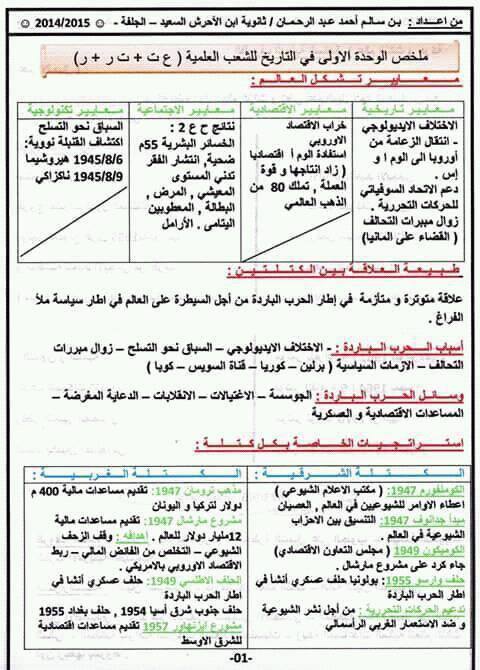 من اعـداد : بـن سـالـم أحمد عبد الرحمـان / ثانوية ابن الأحرش السعيد – الجلفة - ☺ 2014/2015 ☺
ملخص الوحدة الاولى في التاريخ للشعب العلمية ( ع ت + ت ر + ر )
معـــايير تشكل العالم :
معايير تاريخية
الاختلاف الايديولوجي
- انتقال الزعامة من
أوروبا الى الوم ا و
إس .
دعم الاتحاد السوفياتي
للحركات التحررية .
زوال مبررات التحالف
( القضاء على المانيا)
معايير الاقتصادية
خراب الاقتصاد
الاوروبي
استفادة الوم أ اقتصاديا
( زاد انتاجها و قوة
العملة , تملك 80 من
الذهب العالمي
معايير الاجتماعية
نتائج ح ع 2 :
الخسائر البشرية 55م
ضحية, انتشار الفقر
تدني المستوى
المعيشي , المرض ,
البطالة , المعطوبين
اليتامى . الأرامل
معايير تكنولوجية
السباق نحو التسلح
اكتشاف القنبلة نووية:
1945/8/6 هيروشيما
1945/8/9 ناكزاكي
طبيعة العلاقة بين الكتلتين :
علاقة متوترة و متأزمة في إطار الحرب الباردة من أجل السيطرة على العالم في اطار سياسة ملأ
الفراغ .
أسباب الحرب الباردة : - الاختلاف الايديولوجي – السباق نحو التسلح – زوال مبررات
التحالف – الازمات السياسية ( برلين – كوريا – قناة السويس – كوبا )
وسائل الحرب الباردة : الجوسسة – الاغتيالات – الانقلابات – الدعاية المغرضة –
المساعدات الاقتصادية و العسكرية
استراتجيات الخاصة بكل كتلة :
الكتلة الشرقية :
الكومنفورم 1947: ( مكتب الاعلام الشيوعي )
اعطاء الاوامر للشيوعيين في العالم , العصيان
مبدأ جدانوف 1947: التنسيق بين الاحزاب
الشيوعية في العالم .
الكوميكون 1949 ( مجلس التعاون الاقتصادي)
جاء كرد على مشروع مارشال .
حلف وارسو 1955: بولونيا حلف عسكري أنشأ في
اطار الحرب الباردة
تدعيم الحركات التحررية : من أجل نشر الشيوعية
و ضد الاستعمار الغربي الرأسمالي
الكتلة الغربية :
مذهب ترومان 1947: تقديم مساعدات مالية 400 م
دولار لتركيا و اليونان
مشروع مارشال 1947: تقديم مساعدات مالية
12مليار دولار للعالم . اهدافه : وقف الزحف
الشيوعي – التخلص من الفائض المالي – ربط
الاقتصاد الاوروبي بالامريكي .
الحلف الاطلسي 1949: حلف عسكري أنشأ في
اطار الحرب الباردة
حلف جنوب شرق أسيا 1954 , حلف بغداد 1955
مشروع ايزنهاور 1957 تقديم مساعدات اقتصادية
للشرق الاوسط
-01-